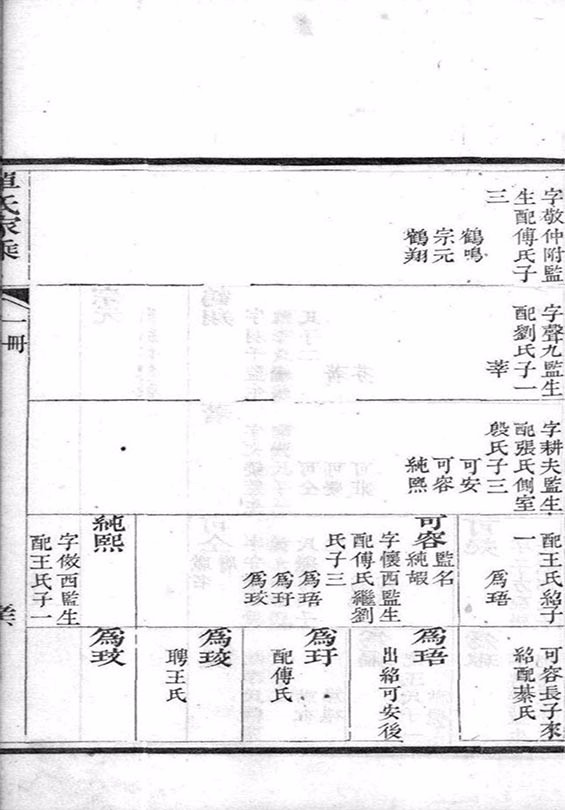 字敬仲附監
生配傅氏子
三
鶴鳴
宗元
鶴翔
字聲九監生
配劉氏子一
莘
字耕夫監生
配張氏側室
殷氏子三
可安
可容
純熙
配王氏紹子
一
為珸
可容
監名
純嘏
字懷西監生
配傅氏繼劉
氏子三
為珸
為玗
為琰
純熙
字倣西監生
配王氏子一
可容長子來
紹配綦氏
為珸
出紹可安後
為玗
配傅氏
為琰
聘王氏
為玟
氏家乘
一冊